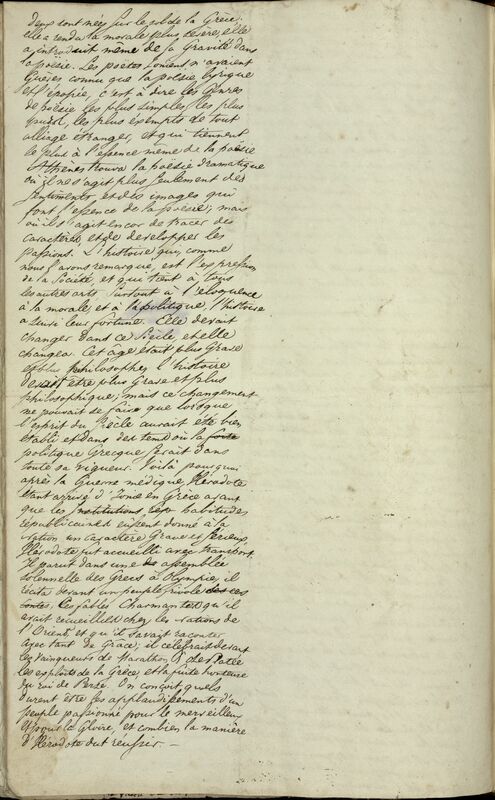 deux sont nées sur le sol de la Grèce;
elle a rendu la morale plus severe, elle
a introduit même de la Gravité dans
la poësie. Les poëtes ioniens n'avaient
Guères connu que la poësie lyrique
et l'épopée, c'est à dire les Genres
de poësie les plus simples, les plus
purs, les plus exempts de tout
alliage étranger, et qui tiennent
le plus à l'essence même de la poësie
Athenes trouva la poësie dramatique
où il ne s'agit plus seulement des
sentiments, et des images qui
font l'essence de la poësie; mais
où il s'agit encor de tracer des
caractères et de developper les
passions. L'histoire qui, comme
nous l'avons remarqué, est l'expression
de la Société, et qui tient à tous
les autres arts surtout à l'éloquence
à la morale, et à la politique, l'histoire
a suivi leur fortune. Elle devait
changer dans ce Siècle, et elle
changea. Cet âge étant plus Grave
et plus philosophe, l'histoire
devait être plus Grave et plus
philosophique; mais ce changement
ne pouvait se faire que lorsque
l'esprit du Siecle aurait été bien
établi et dans des tems où la force
politique Grecque serait dans
toute sa vigueur. Voilà pourquoi
après la Guerre médique, Hérodote
étant arrivé d'Ionie en Grèce avant
que les institutions les habitudes
républicaines eussent donné à la
nation un caractère Grave et sérieux,
Hérodote fut accueilli avec transport.
Il parut dans une assemblée
solennelle des Grecs à Olympie, il
récita devant un peuple frivole ces
contes, les fables Charmantes qu'il
avait recueillies chez les nations de
l'Orient, et qu'il savait raconter
avec tant de Grace; il célébrait devant
les vainqueurs de Marathon, & de Platée
les exploits de la Grèce, et la fuite honteuse
du roi de Perse. On conçoit quels
durent être les applaudissements d'un
peuple passionné pour le merveilleux
et pour la Gloire, et combien la manière
d'Hérodote dut reussir. —